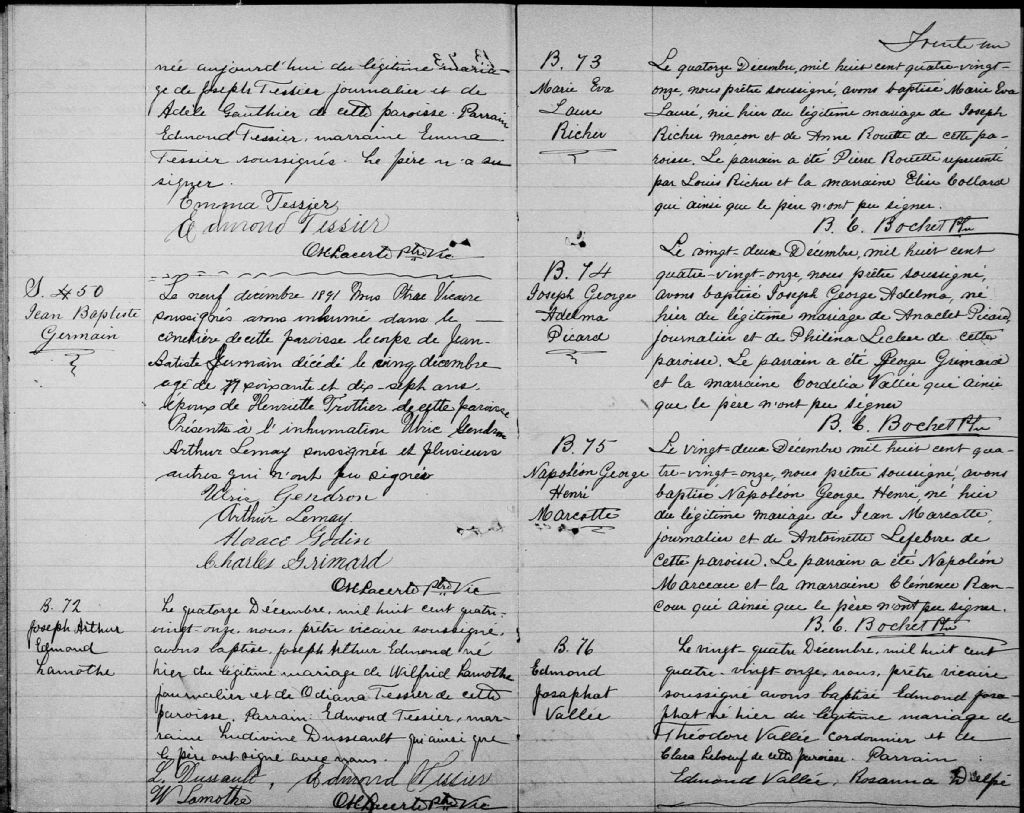 née aujourd'hui du légitime maria-
ge de Joseph Tessier journalier et de
Adèle Gauthier de cette paroisse. Parrain
Edmond Tessier, marraine Emma
Tessier soussignés. Le père n'a su
signer.
Emma Tessier
Edmond Tessier
Ptre Vic
S. 50
Jean Baptiste
Germain
Le neuf décembre 1891 Nous Ptre Vicaire
soussignés avons inhumé dans le
cimetière de cette paroisse le corps de Jean-
Batiste Germain décédé le cinq décembre
agé de 77 soixante et dix-sept ans.
époux de Henriette Trottier de cette paroisse
Présents à l'inhumation Ulric Gendron
Arthur Lemay soussignés et plusieurs
autres qui n'ont pu signer
Ulric Gendron
Arthur Lemay
Horace Godin
Charles Grimard
Ptre Vic
B. 72
Joseph Arthur
Edmond
Lamothe
Le quatorze Décembre, mil huit cent quatre-
vingt-onze, nous, prêtre vicaire soussigné,
avons baptisé, Joseph Arthur Edmond né
hier du légitime mariage de Wilfrid Lamothe
journalier et de Odiana Tessier de cette
paroisse. Parrain: Edmond Tessier, mar-
raine Ludivine Dussault qui ainsi que
le père ont signé avec nous.
L. Dussault, Edmond Tessier
W Lamothe Ptre Vic
Trente un
B. 73
Marie Eva
Laure
Richer
Le quatorze Décembre, mil huit cent quatre-vingt-
onze, nous prêtre soussigné, avons baptisé Marie Eva
Lauré, née hier du légitime mariage de Joseph
Richer maçon et de Anne Rouette de cette pa-
roisse. Le parrain a été Pierre Rouette représenté
par Louis Richer et la marraine Elise Collard
qui ainsi que le père n'ont pu signer.
B. C. Bochet Ptre
B. 74
Joseph George
Adelma
Picard
Le vingt-deux Décembre, mil huit cent
quatre-vingt-onze, nous prêtre soussigné,
avons baptisé Joseph George Adelma, né
hier du légitime mariage de Anaclet Picard,
journalier et de Philéna Leclerc de cette
paroisse. Le parrain a été George Grimard
et la marraine Cordelia Vallée qui ainsi
que le père n'ont pu signer
B. C. Bochet Ptre
B. 75
Napoléon George
Henri
Marcotte
Le vingt-deux Décembre mil huit cent qua-
tre-vingt-onze, nous prêtre soussigné, avons
baptisé Napoléon George Henre, né hier
du légitime mariage de Jean Marcotte,
journalier et de Antoinette Lefebvre de
cette paroisse. Le parrain a été Napoléon
Marceau et la marraine Clémence Ran-
cour qui ainsi que le père n'ont pu signer.
B. C. Bochet Ptre
B. 76
Edmond
Josaphat
Vallée
Le vingt quatre Décembre, mil huit cent
quatre-vingt onze, nous, prêtre vicaire
soussigné avons baptisé Edmond Josa-
phat né hier du légitime mariage de
Théodore Vallée cordonnier et de
Clara Leboeuf de cette paroisse. Parrain:
Edmond Vallée, Rosanna